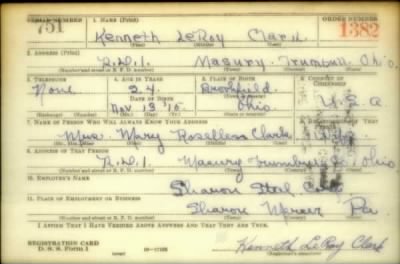 SERIAL NUMBER 1. NAME (Print) ORDER NUMBER
751 Kenneth LeRoy Clark 1382
(First) (Middle) (Last)
2. ADDRESS (Print)
R.D.1. Masury Trumbull Ohio
(Number and street or R. F. D. number) (Town) (County) (State)
3. TELEPHONE 4. AGE IN YEARS 5. PLACE OF BIRTH 6. COUNTRY OF CITIZENSHIP
None 24 Brookfield
DATE OF BIRTH
Nov 13 '15 Ohio U.S.A
(Exchange) (Number) (Mo.) (Day) (Yr.) (State or country)
7. NAME OF PERSON WHO WILL ALWAYS KNOW YOUR ADDRESS 8. RELATIONSHIP OF THAT PERSON
Mrs. Mary Rosellen Clark Wife
(Mr., Mrs., Miss) (First) (Middle) (Last)
9. ADDRESS OF THAT PERSON
R.D.1. Masury Trumbull Co. Ohio
(Number and street or R. F. D. number) (Town) (County) (State)
10. EMPLOYER'S NAME
Sharon Steel
11. PLACE OF EMPLOYMENT OR BUSINESS
Sharon Mercer Pa
(Number and street or R. F. D. number) (Town) (County) (State)
I AFFIRM THAT I HAVE VERIFIED ABOVE ANSWERS AND THAT THEY ARE TRUE.
REGISTRATION CARD
D. S. S. Form 1 Kenneth LeRoy Clark